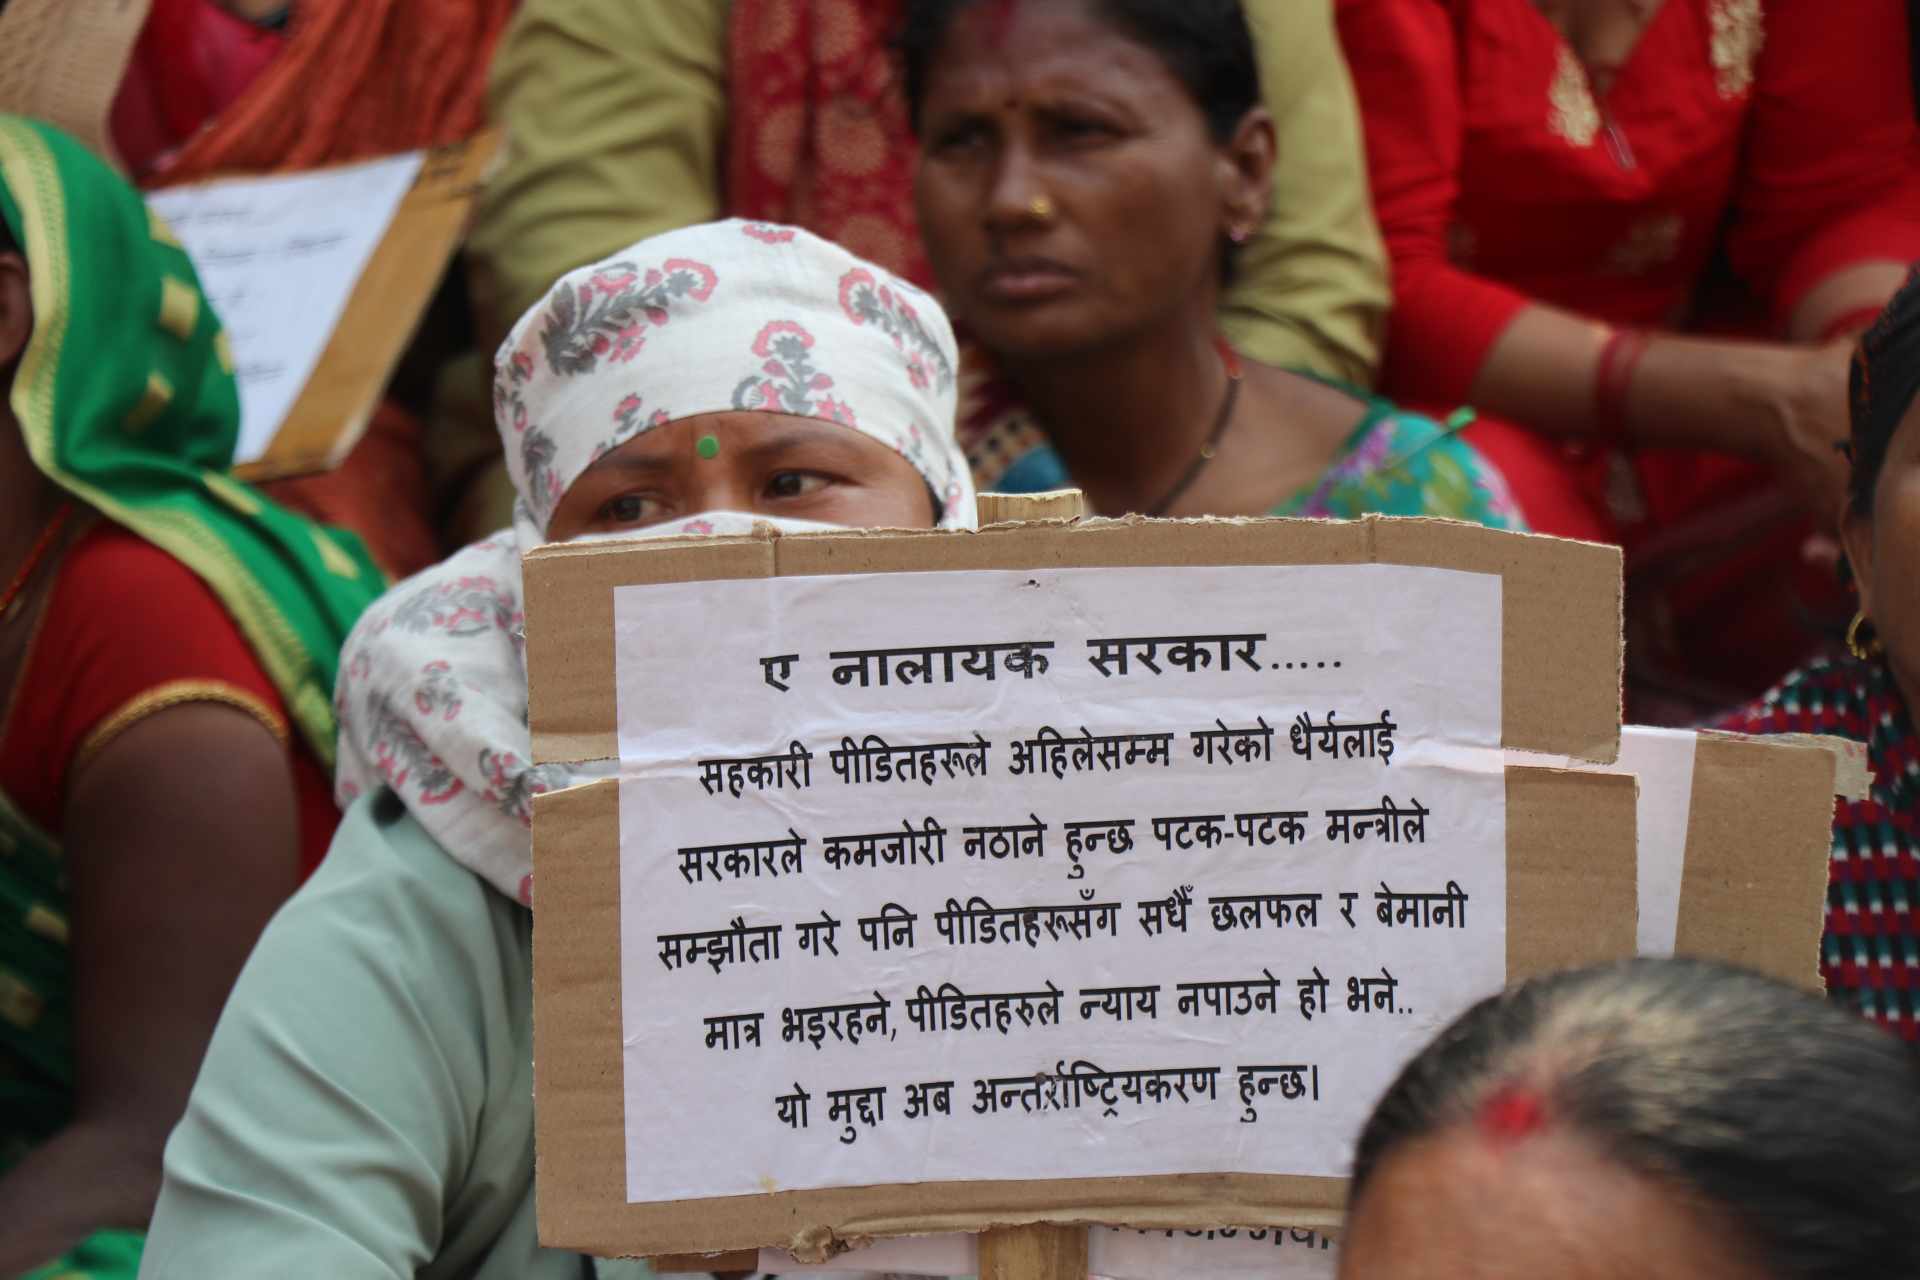 ए नालायक सरकार.....
सहकारी पीडितहरूले अहिलेसम्म गरेको धैर्यलाई
सरकारले कमजोरी नठाने हुन्छ पटक-पटक मन्त्रीले
सम्झौता गरे पनि पीडितहरूसँग सधैँ छलफल र बेमानी
मात्र भइरहने, पीडितहरुले न्याय नपाउने हो भने..
यो मुद्दा अब अन्तर्राष्ट्रियकरण हुन्छ।